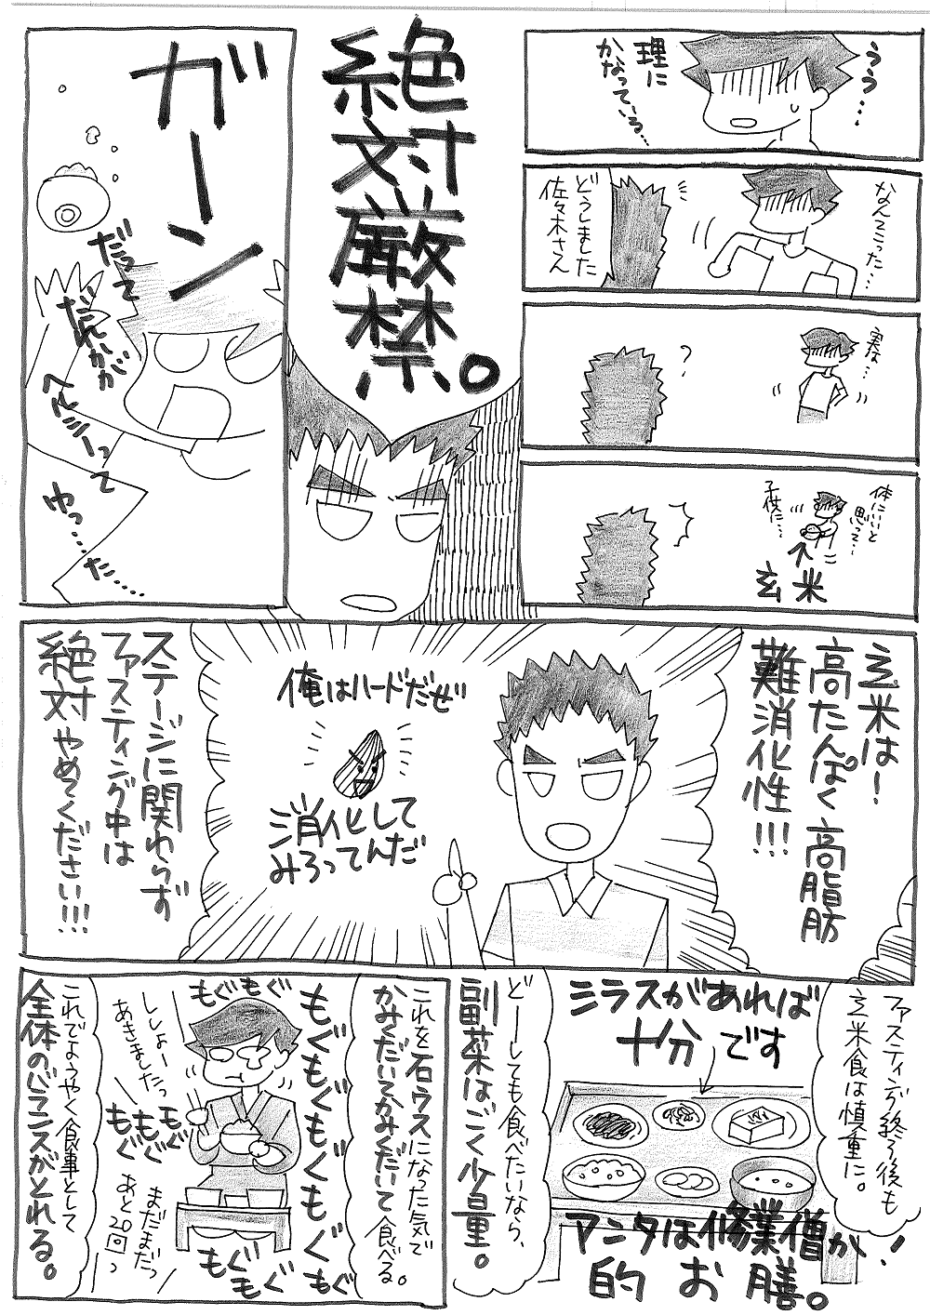 うう…
理に
かなっている…
なんてこった…
どうしました
佐々木さん
実は…
？
体にいいと
思って…
子供に…
玄米
絶対厳禁。
ガーン
だって
だれかが
ヘルシーって
ゆっ……た……
玄米は！
高たんぱく 高脂肪
難消化性!!!
俺はハードだぜ
消化して
みろってんだ
ステージに関わらず
ファスティング中は
絶対やめてください!!!
ファスティング終了後も
玄米食は慎重に。
シラスがあれば
十分です
アンタは修業僧か！
的お膳。
どーしても食べたいなら、
副菜はごく少量。
これを石ウスになった気で
かみくだいてかみくだいて食べる。
もぐもぐ
もぐもぐもぐもぐもぐ
ししょー
あきましたっ
もぐ
もぐ
もぐ
まだまだっ
あと20回っ
もぐ
もぐ
これでようやく食事として
全体のバランスがとれる。